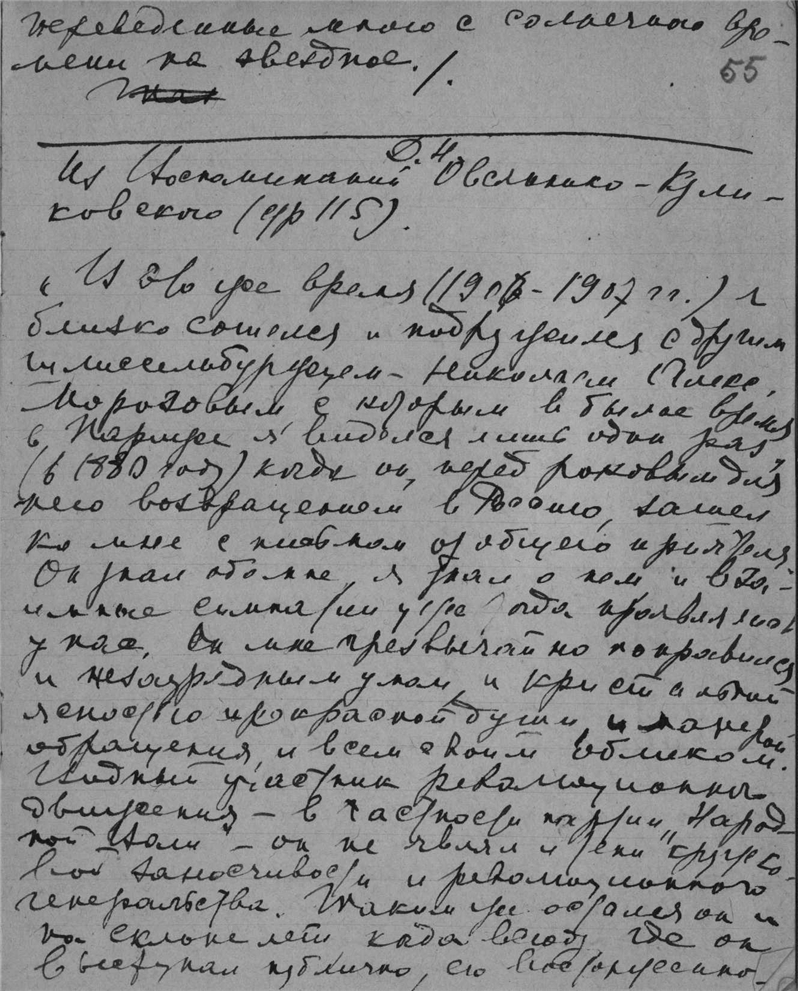 переведенные мною с солнечного вре-
мени на звездное./.
55
Из Воспоминаний Д.Н. Овсянико-Кули-
ковского (стр 115).
„В это же время (1906-1907 гг.) я
близко сошелся и подружился с другим
шлиссельбуржцем - Николаем Алекс.
Морозовым, с которым в былое время
в Париже я виделся лишь один раз,
(в 1880 году) когда он, перед роковым для
него возвращением в Россию, зашел
ко мне с письмом от общего приятеля.
Он знал обо мне, я знал о нем и вза-
имные симпатии уже тогда проявлялись
у нас. Он мне чрезвычайно понравился
и незаурядным умом, и кристальной
ясностью прекрасной души и манерой
обращения, и всем своим обликом.
Видный участник революционного
движения - в частности партии „Народ-
ной Воли" - он не являл и тени кружко-
вой заносчивости и революционного
генеральства. Таким же остался он и
на склоне лет, когда всюду, где он
выступал публично, его восторженно-